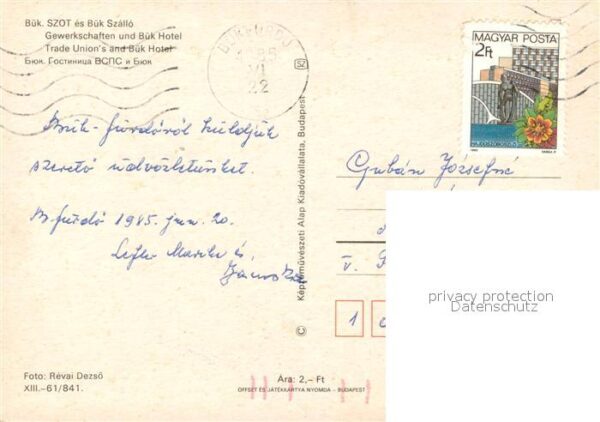 Bük. SZOT és Bük Szálló
Gewerkschaften und Bük Hotel
Trade Union's and Bük Hotel
Бюк. Гостиница ВСПС и Бюк
85
VI
22
SZ
MAGYAR POSTA
2Ft
HAJDÚSZOBOSZLÓ
Bük-fürdőről küldjük
szerető üdvözletünket.
B. fürdő 1985. jun. 20.
és
Gubán Józsefné
V.
1
Képzőművészeti Alap Kiadóvállalata, Budapest
©
privacy protection
Datenschutz
Foto: Révai Dezső
XIII.–61/841.
Ára: 2,– Ft
OFFSET ÉS JÁTÉKKÁRTYA NYOMDA – BUDAPEST